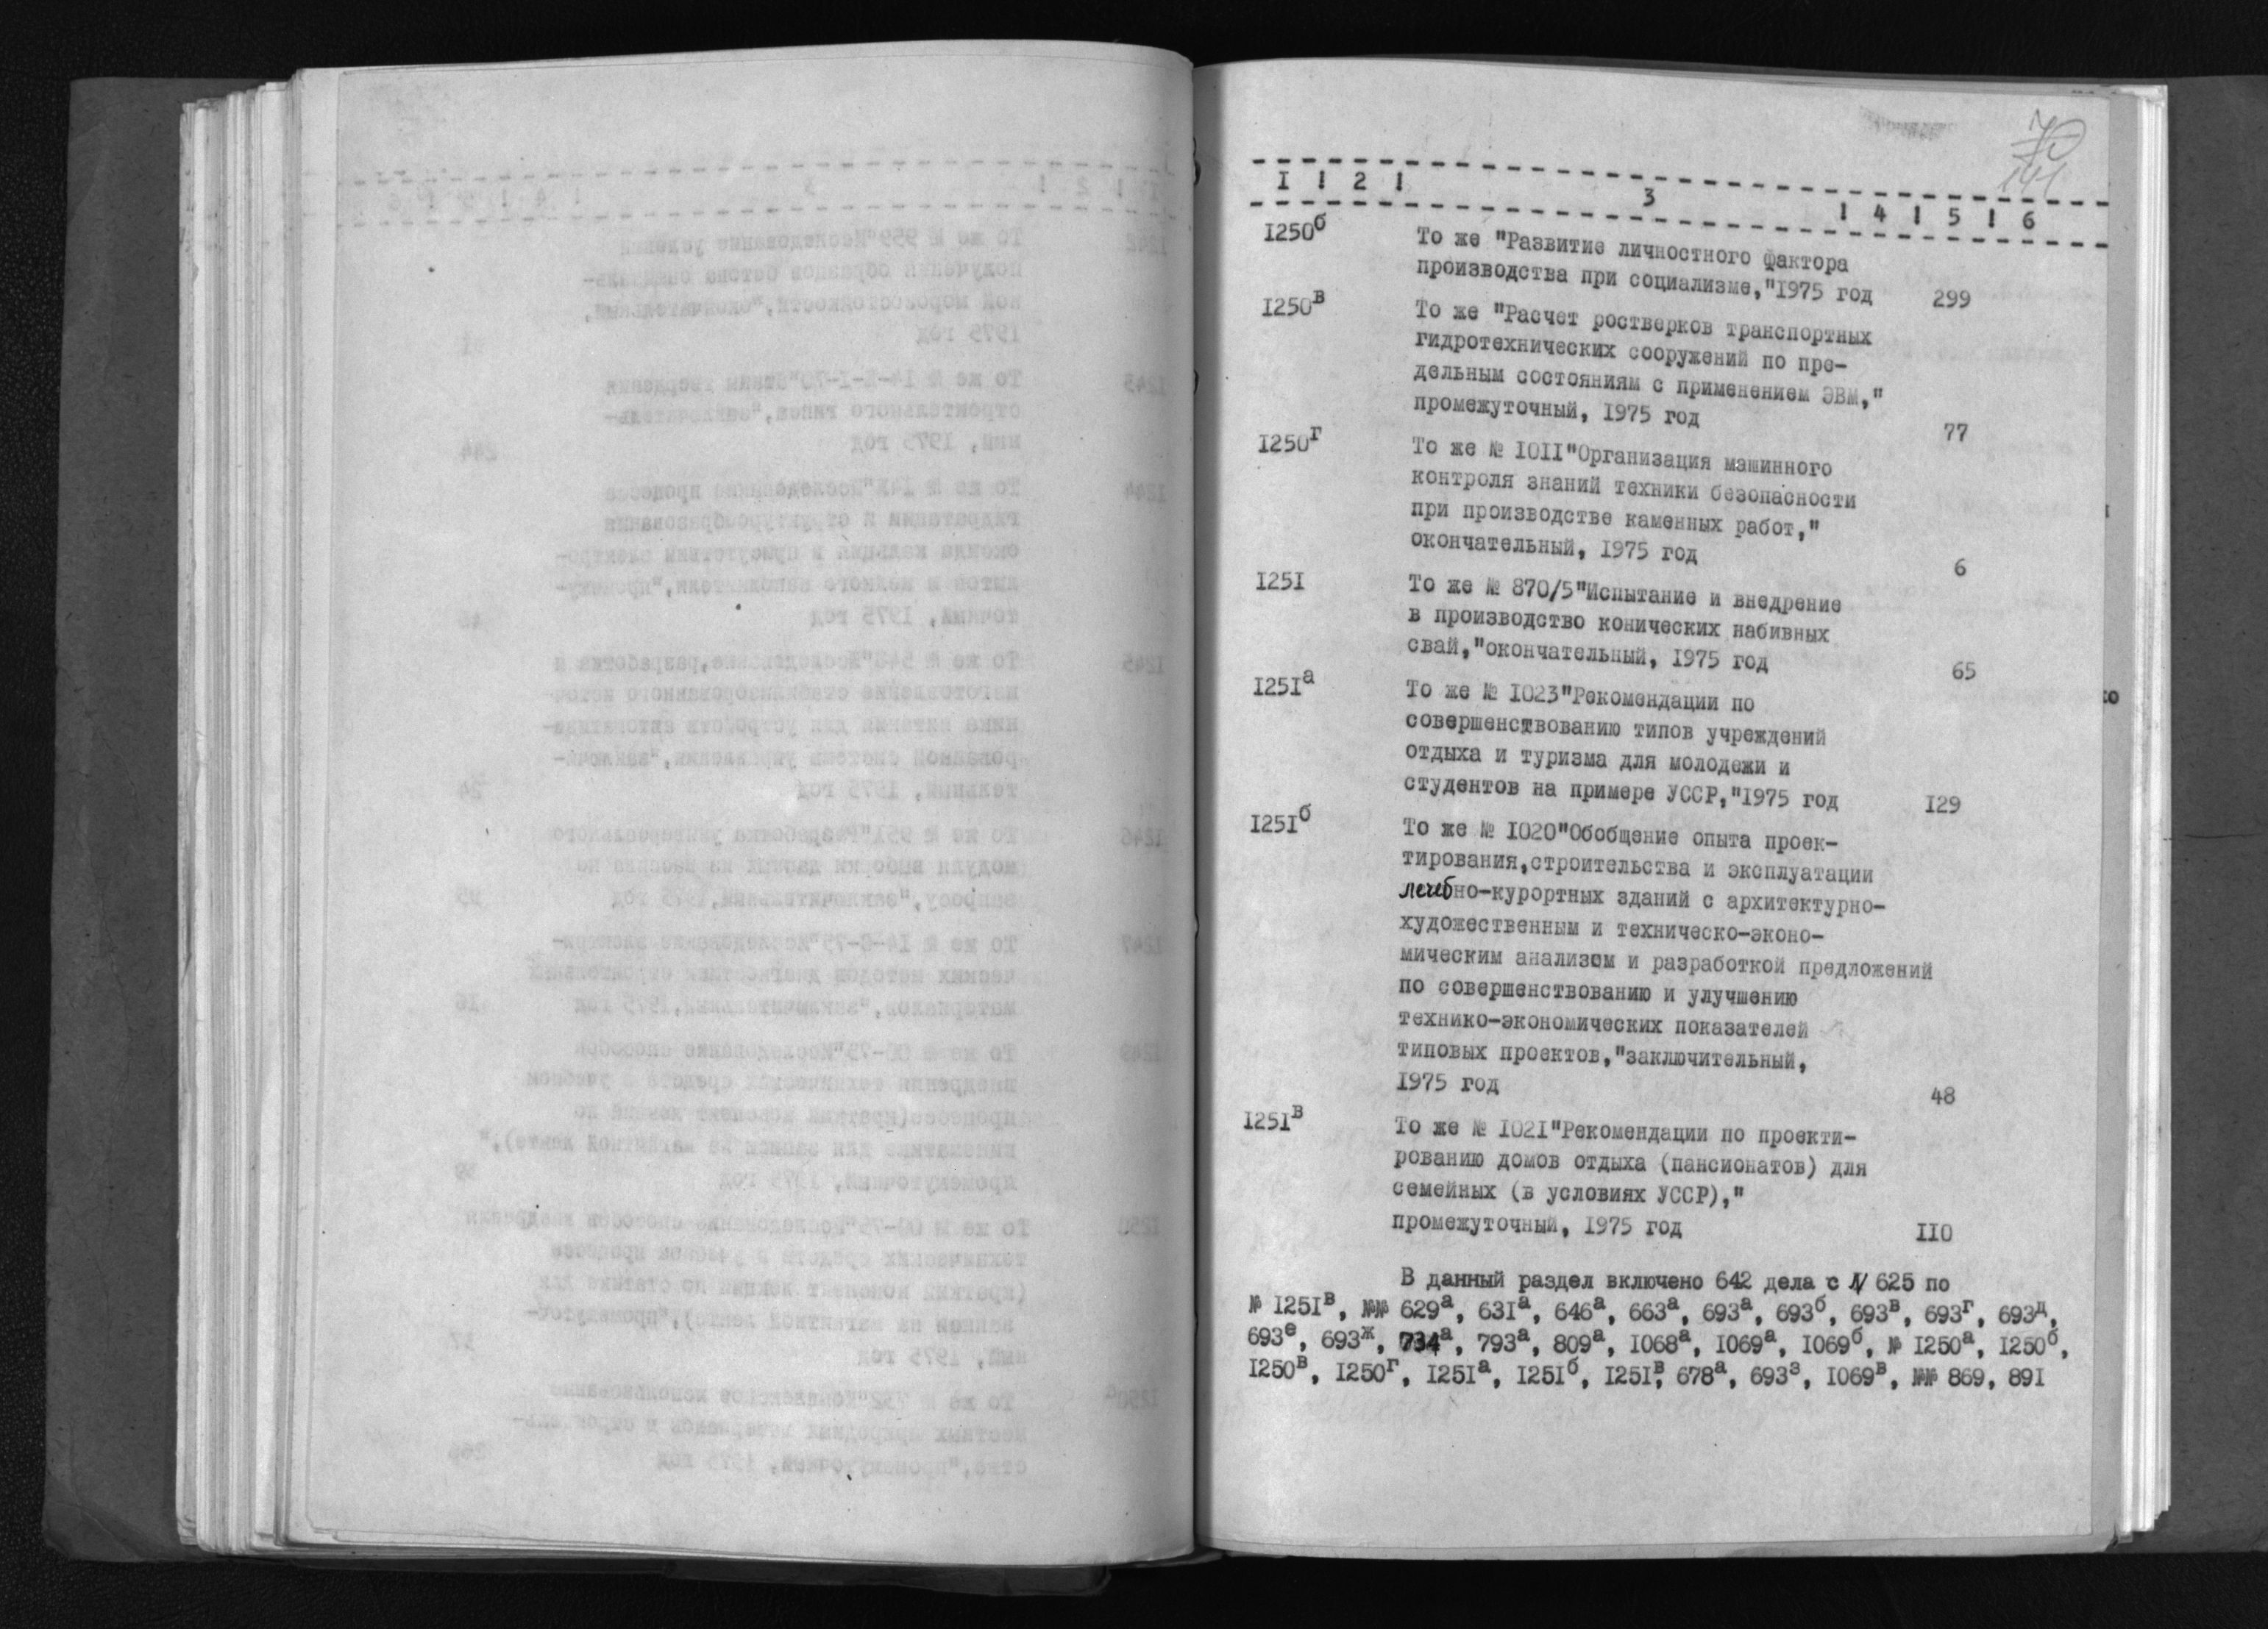 141
1 ! 2 ! 3 ! 4 ! 5 ! 6
1250б То же "Развитие личностного фактора
производства при социализме,"1975 год 299
1250в То же "Расчет ростверков транспортных
гидротехнических сооружений по пре-
дельным состояниям с применением ЭВМ,"
промежуточный, 1975 год 77
1250г То же № 1011"Организация машинного
контроля знаний техники безопасности
при производстве каменных работ,"
окончательный, 1975 год 6
1251 То же № 870/5"Испытание и внедрение
в производство конических набивных
свай,"окончательный, 1975 год 65
1251а То же № 1023"Рекомендации по
совершенствованию типов учреждений
отдыха и туризма для молодежи и
студентов на примере УССР,"1975 год 129
1251б То же № 1020"Обобщение опыта проек-
тирования,строительства и эксплуатации
лечебно-курортных зданий с архитектурно-
художественным и техническо-эконо-
мическим анализом и разработкой предложений
по совершенствованию и улучшению
технико-экономических показателей
типовых проектов,"заключительный,
1975 год 48
1251в То же № 1021"Рекомендации по проекти-
рованию домов отдыха (пансионатов) для
семейных (в условиях УССР),"
промежуточный, 1975 год 110
В данный раздел включено 642 дела с № 625 по
№ 1251в, №№ 629а, 631а, 646а, 663а, 693а, 693б, 693в, 693г, 693д,
693е, 693ж, 734а, 793а, 809а, 1068а, 1069а, 1069б, № 1250а, 1250б,
1250в, 1250г, 1251а, 1251б, 1251в, 678а, 693з, 1069в, №№ 869, 891